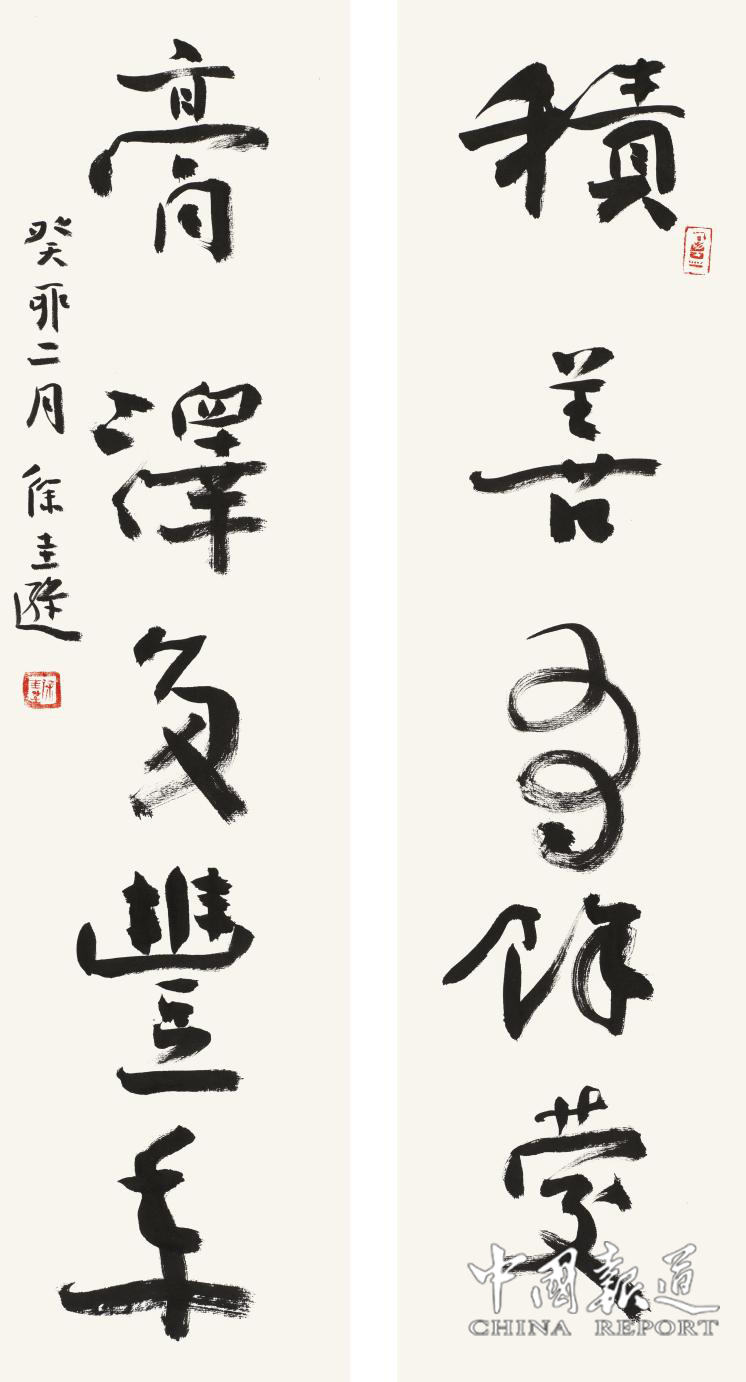 積善有餘慶
膏澤多豐年
癸卯二月 徐圭遜
中國報道
CHINA REPORT